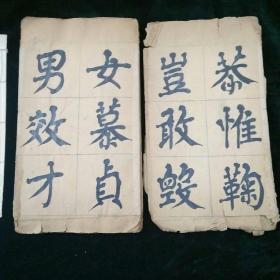 恭惟鞠
豈敢毀
女慕貞
男效才